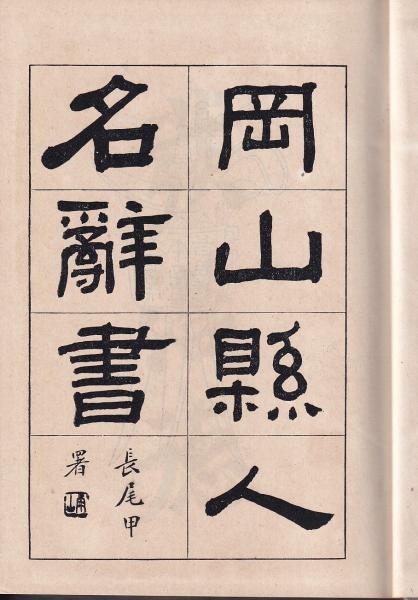 岡山縣人
名辭書
長尾甲
署